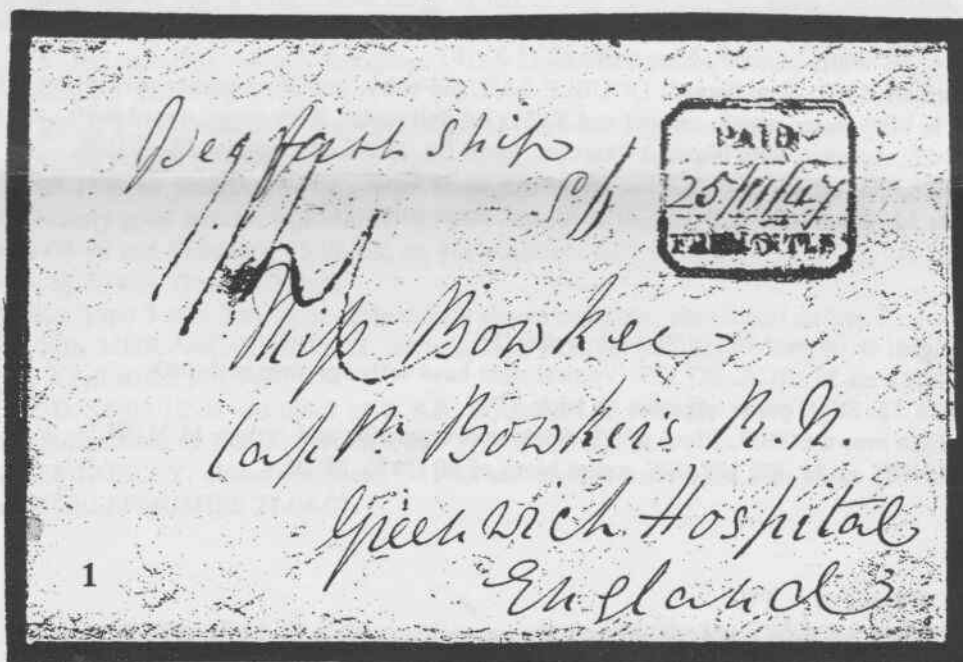 Per first ship
PAID
25/11/47
FREMANTLE
Miss Bowker
Captn. Bowkers R.N.
Greenwich Hospital
England
1